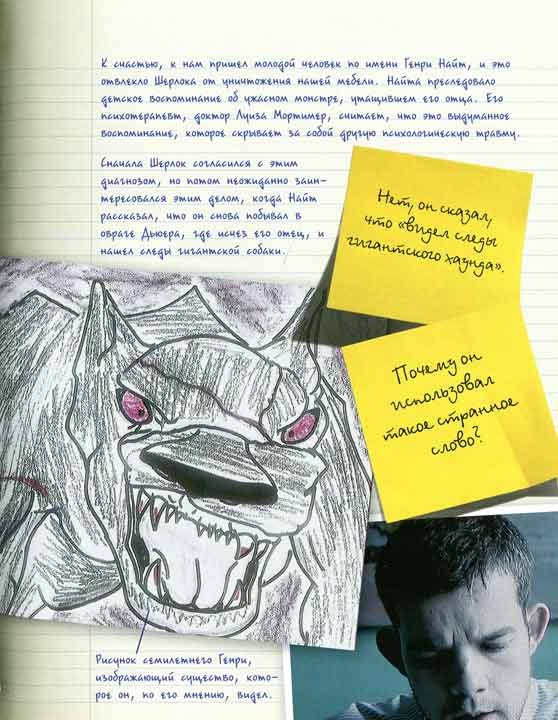 К счастью, к нам пришел молодой человек по имени Генри Найт, и это
отвлекло Шерлока от уничтожения нашей мебели. Найта преследовало
детское воспоминание об ужасном монстре, утащившем его отца. Его
психотерапевт, доктор Луиза Мортимер, считает, что это выдуманное
воспоминание, которое скрывает за собой другую психологическую травму.
Сначала Шерлок согласился с этим
диагнозом, но потом неожиданно заин-
тересовался этим делом, когда Найт
рассказал, что он снова побывал в
овраге Дьюера, где исчез его отец, и
нашел следы гигантской собаки.
Нет, он сказал,
что «видел следы
гигантского хаунда».
Почему он
использовал
такое странное
слово?
Рисунок семилетнего Генри,
изображающий существо, кото-
рое он, по его мнению, видел.